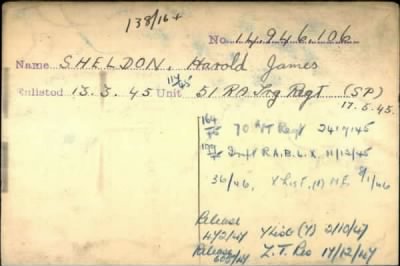 138/16+
No. 14.946.106
Name SHELDON, Harold James
Enlisted 15.3.45 Unit 51 RA Trg Regt (SP)
17.5.45
70 Regt 24 45
Draft R.A. B.L.X. 11/12/45
36/46, X List, (1) ME 9/1/46
Release Y list (Y) 2/10/47
Release Z.T. Res 17/12/47